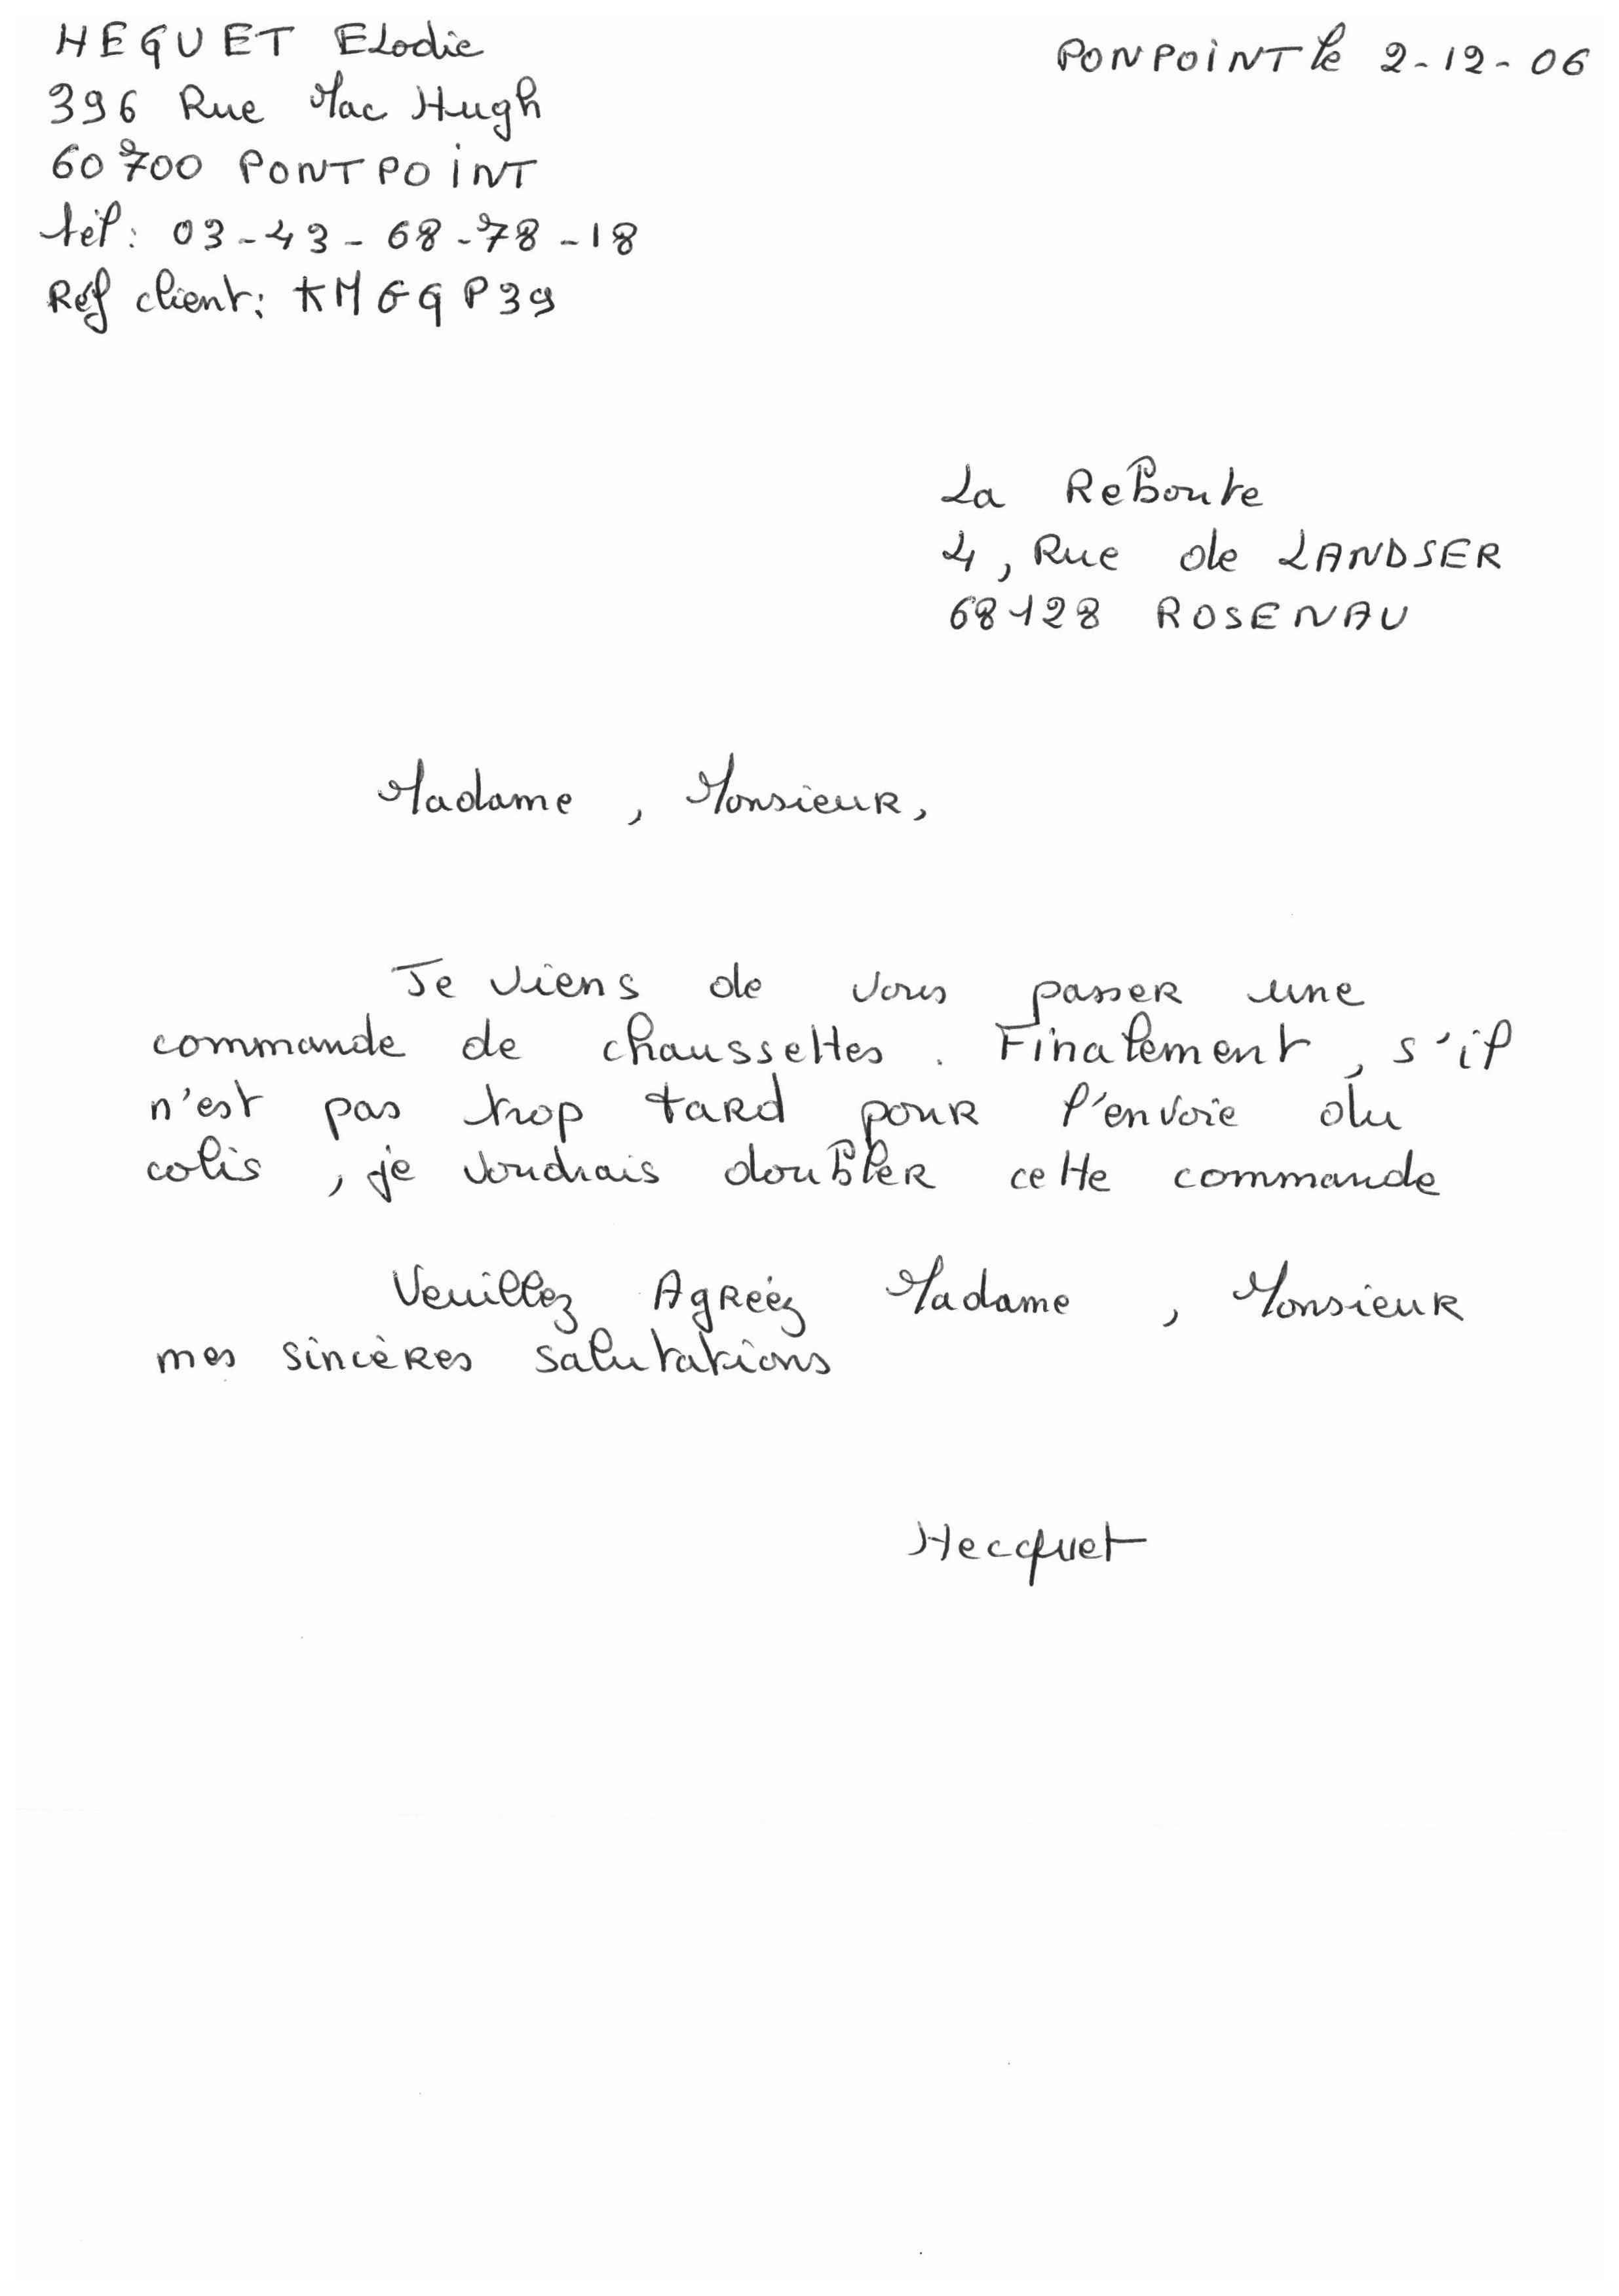 HEQUET Elodie
PONPOINT le 2-12-06
396 Rue Mac Hugh
60700 PONTPOINT
tél: 03-43-68-78-18
Réf client: KMGQP39
La Reboute
4, Rue de LANDSER
68128 ROSENAU
Madame, Monsieur,
Je viens de vous passer une
commande de chaussettes. Finalement, s'il
n'est pas trop tard pour l'envoie du
colis, je voudrais doubler cette commande
Veuillez Agréez Madame, Monsieur
mes sincères salutations
Hecquet